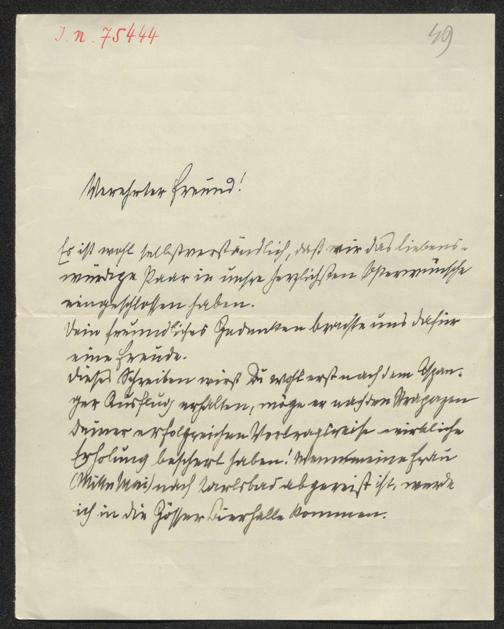 J. N. 75444
49
Verehrter Freund!
Es ist wohl selbstverständlich, daß wir das liebens-
würdige Paar in unsre herzlichsten Osterwünsche
eingeschlossen haben.
Dein freundliches Gedenken brachte uns dafür
eine Freude.
Dieses Schreiben wirst Du wohl erst nach dem
ger Ausflug erhalten, möge er nach den Strapazen
Deiner erfolgreichen Vortragsreise wirkliche
Erholung beschert haben! Wenn meine Frau
(Mitte Mai) nach Karlsbad abgereist ist, werde
ich in die Gösser Bierhalle kommen.